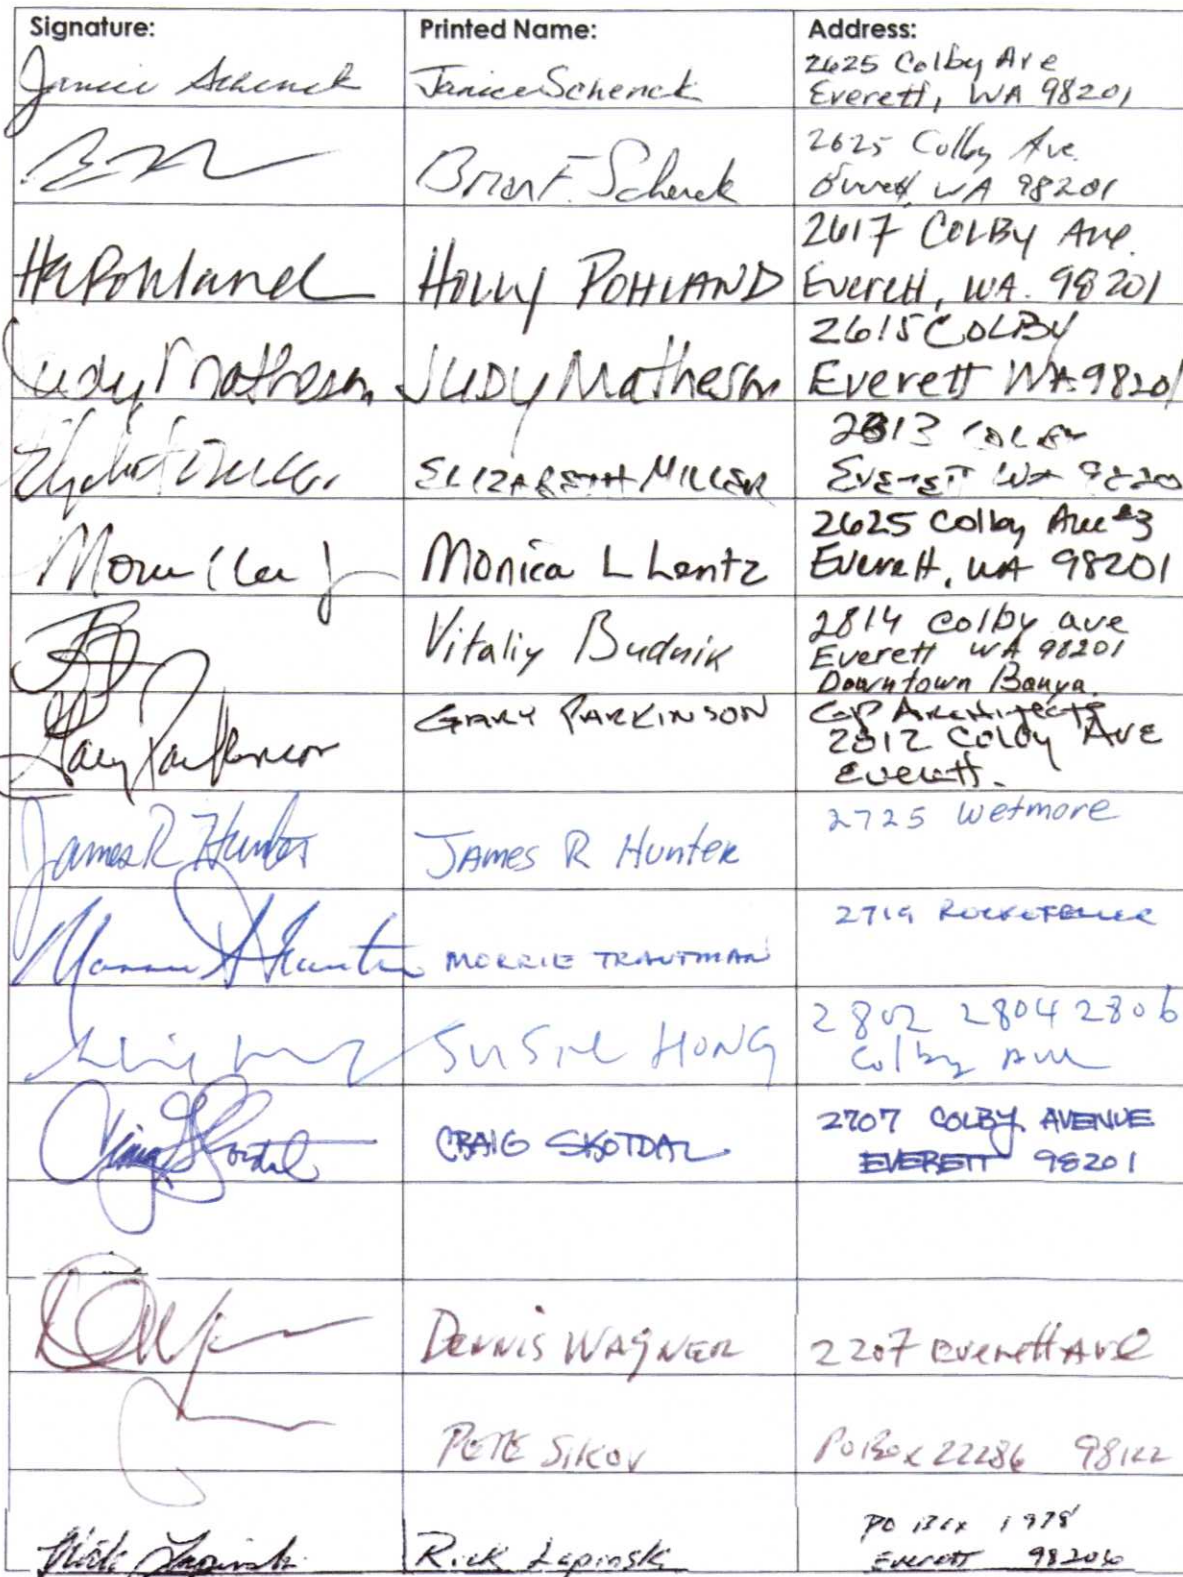 Signature: Printed Name: Address:
Janice Schenck Janice Schenck 2625 Colby Ave
Everett, WA 98201
Brian F. Schenck 2625 Colby Ave.
Everett, WA 98201
H Pohland Holly POHLAND 2617 COLBY Ave.
Everett, WA. 98201
Judy Matheson Judy Matheson 2615 COLBY
Everett WA 98201
ELIZABETH MILLER COLBY
EVERETT WA
Monica L Lentz 2625 Colby Ave #3
Everett, WA 98201
Vitaliy Budnik 2814 Colby ave
Everett WA 98201
Downtown Banya.
Gary Parkinson GARY PARKINSON GP Architects
2812 Colby AVE
Everett.
James R Hunter JAMES R Hunter 2725 Wetmore
MORRIE TRAUTMAN 2719 ROCKEFELLER
SUSIE HONG 2802 2804 2806
Colby Ave
Craig Skotdal CRAIG SKOTDAL 2707 COLBY AVENUE
EVERETT 98201
DENNIS WAGNER 2207 Everett AVE
PETE SIKOV PO Box 22286 98122
Rick Lapinski Rick Lapinski PO Box 1978
Everett 98206